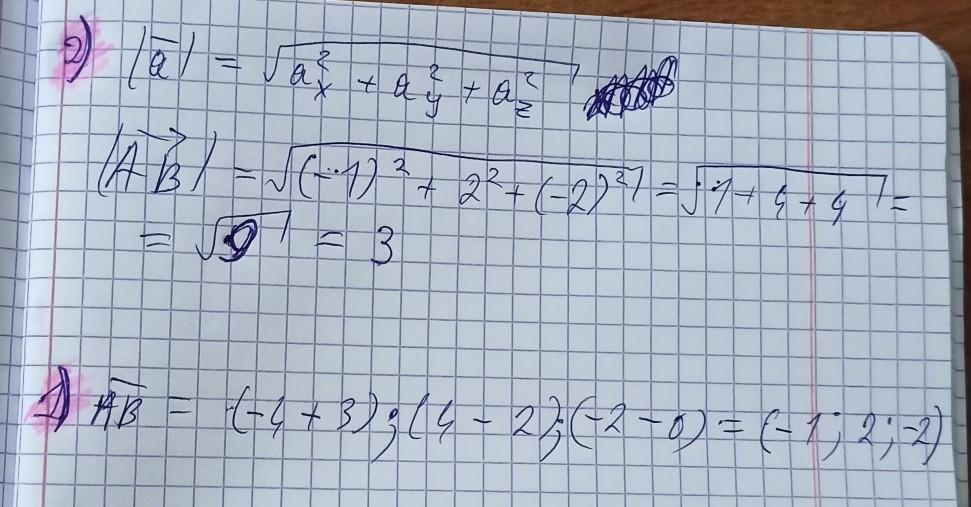 2) |a̅| = √(aₓ² + a_y² + a_z²)
|A⃗B⃗| = √((-1)² + 2² + (-2)²) = √(1 + 4 + 4) =
= √9 = 3
1) A̅B̅ = (-4 + 3); (4 - 2); (-2 - 0) = (-1; 2; -2)